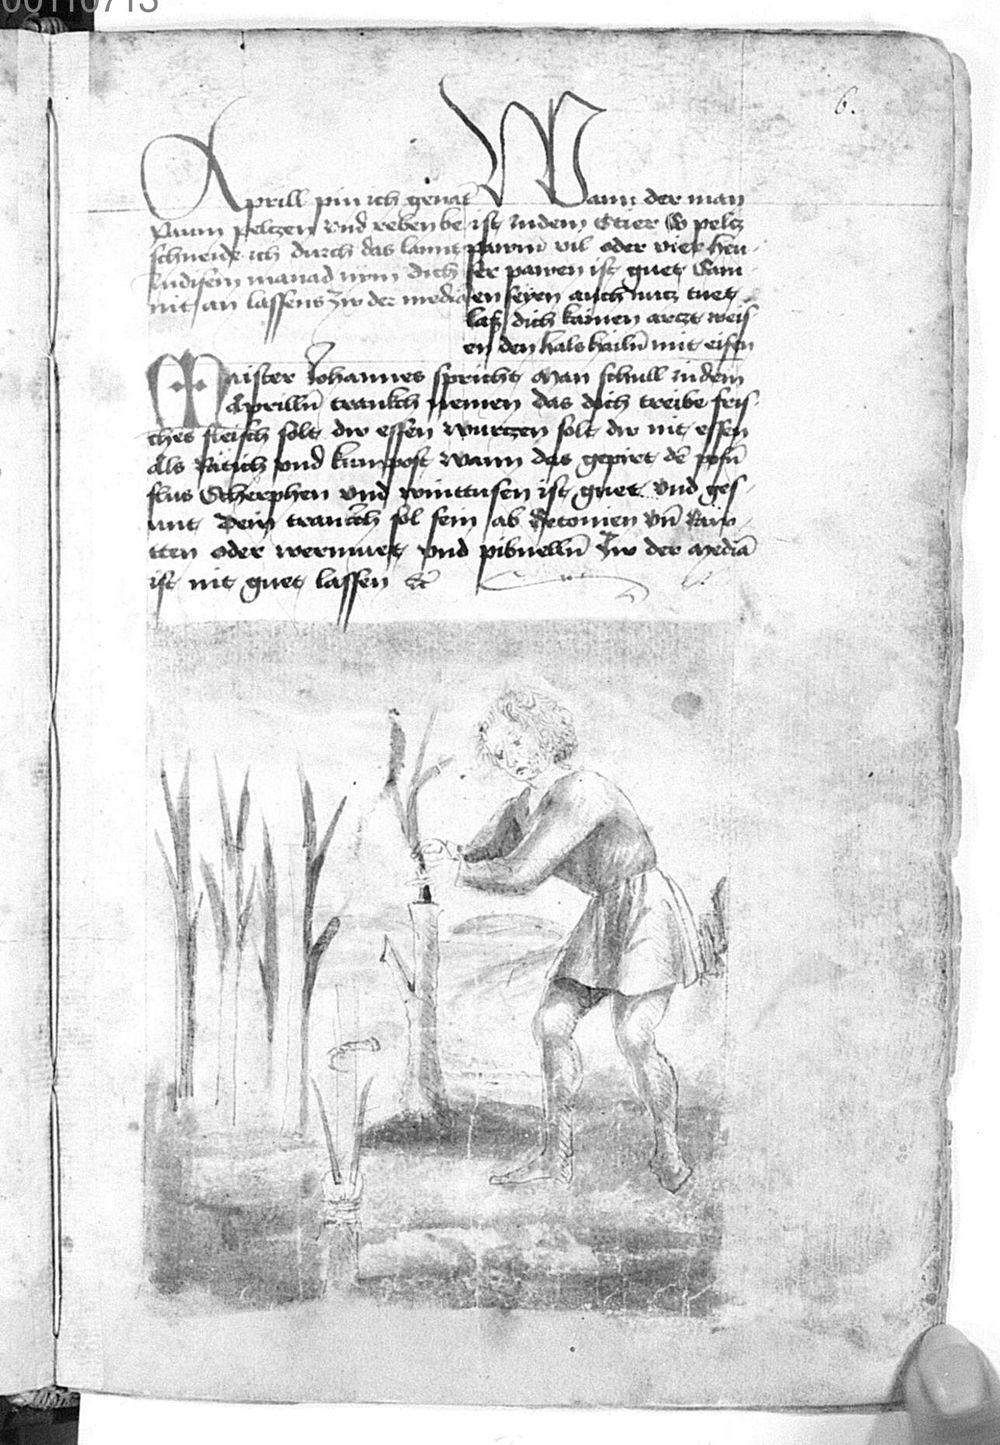 00110713
6.
Aprill pin ich genāt
Paum peltzen vnd reben be
schneide ich durch das lannt
In disem manad nym dich
nit an lassens zw der mediā
Wann der man
ist in dem Stier So peltz
pawm vil oder vier heu
ser pawen ist guet Sam
en seyen auch nutz tuet
lass dich kainen arczt weis
en den hals hailn̄ mit eisen
Maister Johannes spricht Man schull in dem
Aprilln̄ tranckh nemen das dich treibe fris
ches fleisch solt dw essen wurtzen solt dw nit essen
Als Ratich vnd kumpost wann das gepirt dē posn̄
flus Schrephen vnd winttusen ist guet vnd ges
unt Dein tranckh sol sein ab Betonien vn̄ Raw
tten oder wermuet vnd pibnelln̄ Zw der Mediā
ist nit guet lassen Ec̄